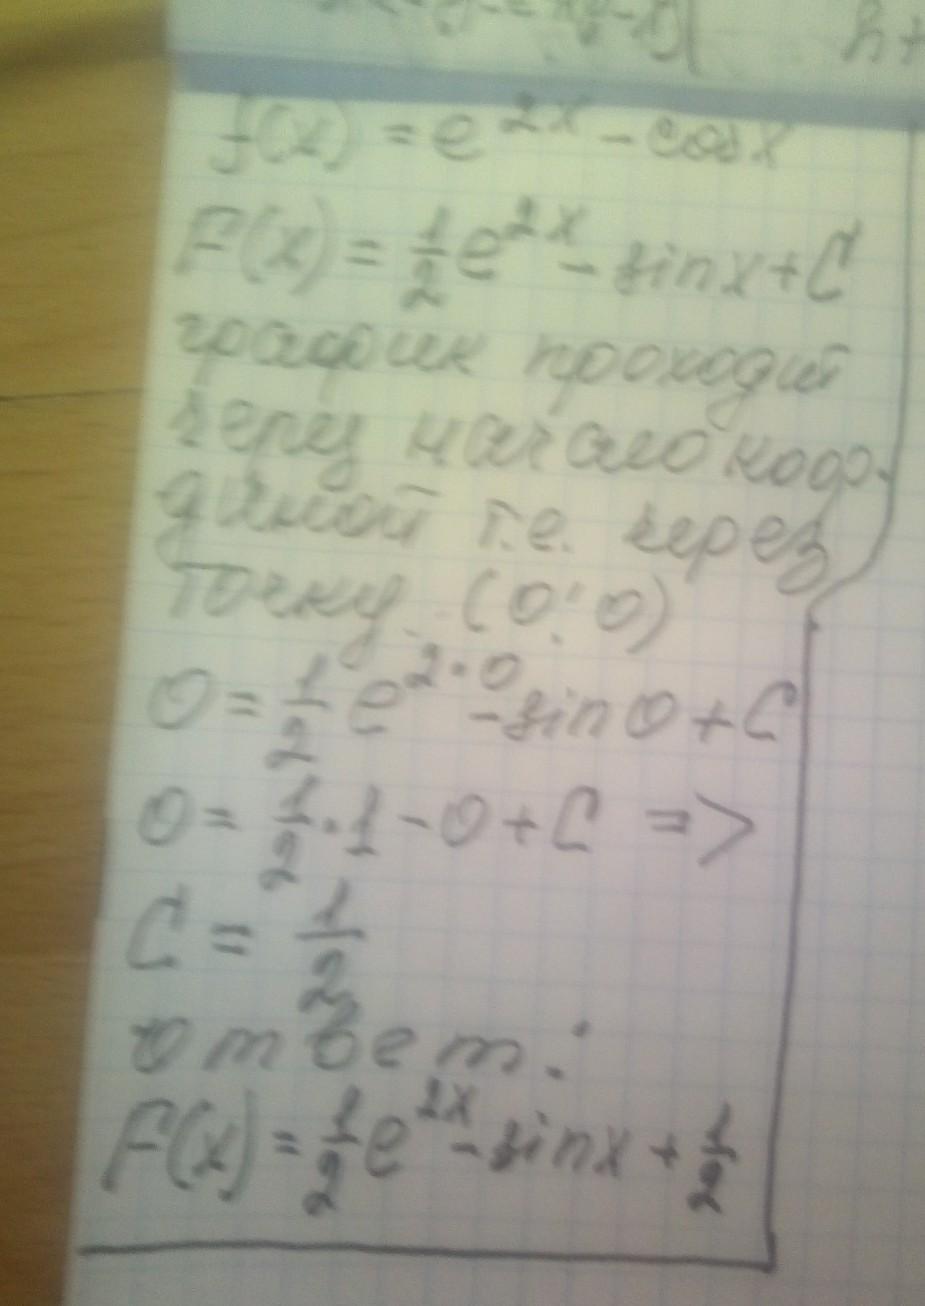 f(x) = e^2x - cosx
F(x) = 1/2 e^2x - sinx + C
график проходит
через начало коор-
динат т.е. через
точку (0;0)
0 = 1/2 e^2·0 - sin0 + C
0 = 1/2 · 1 - 0 + C =>
C = 1/2
ответ:
F(x) = 1/2 e^2x - sinx + 1/2